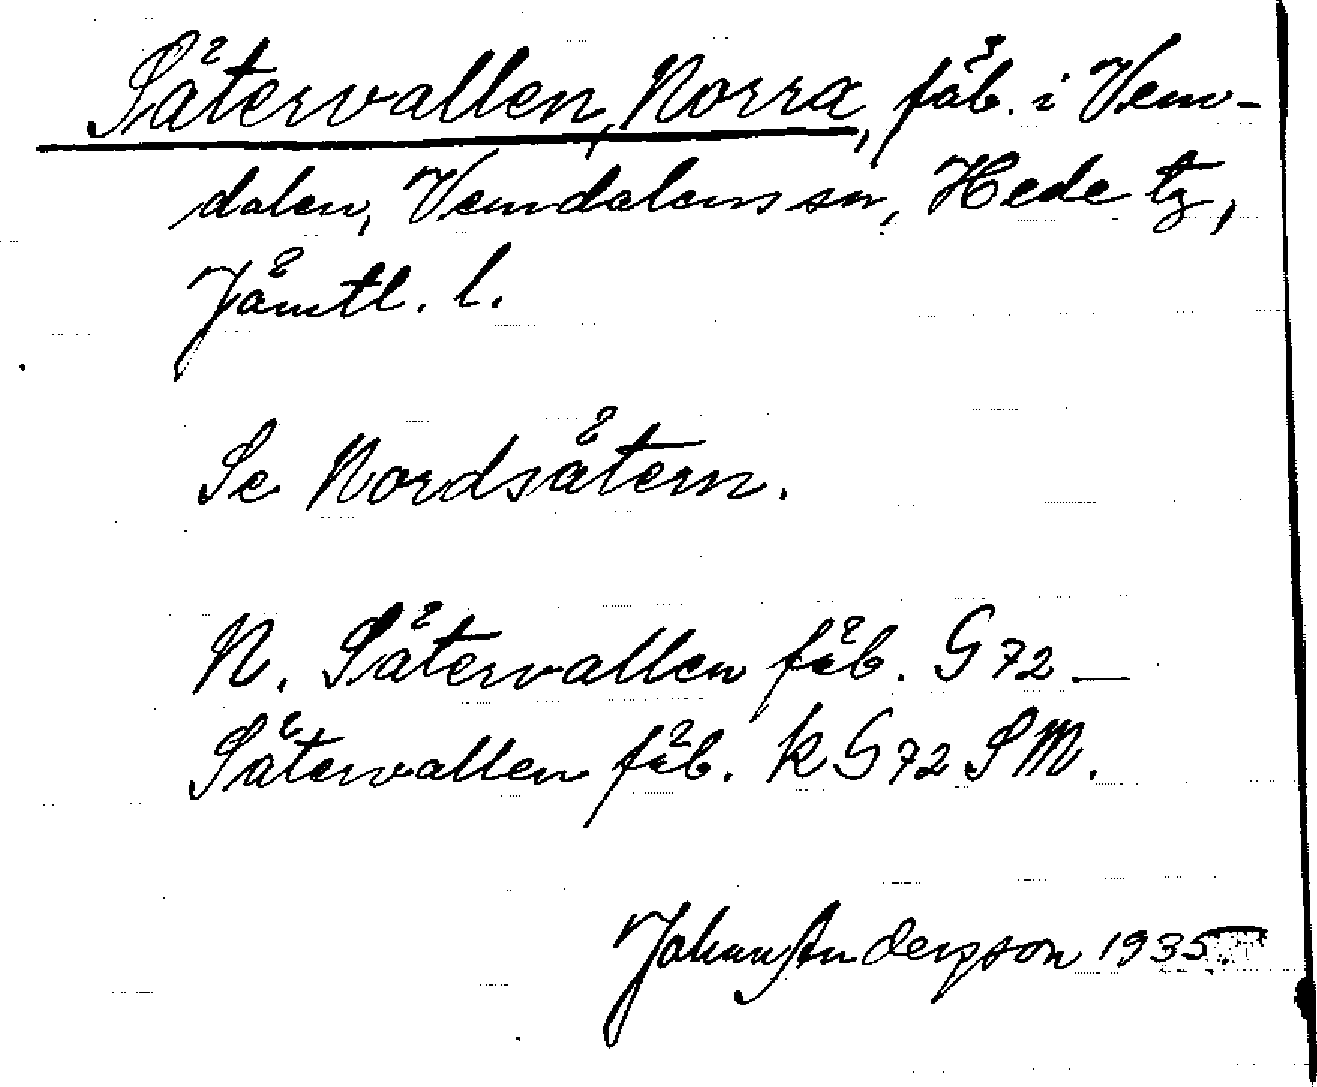 Sätervallen, Norra, fäb. i Vem-
dalen, Vemdalens sn, Hede tg,
Jämtl. l.
Se Nordsätern.
N. Sätervallen fäb. G 72 –
Sätervallen fäb. k G 72 SM.
Johan Anderson 1935